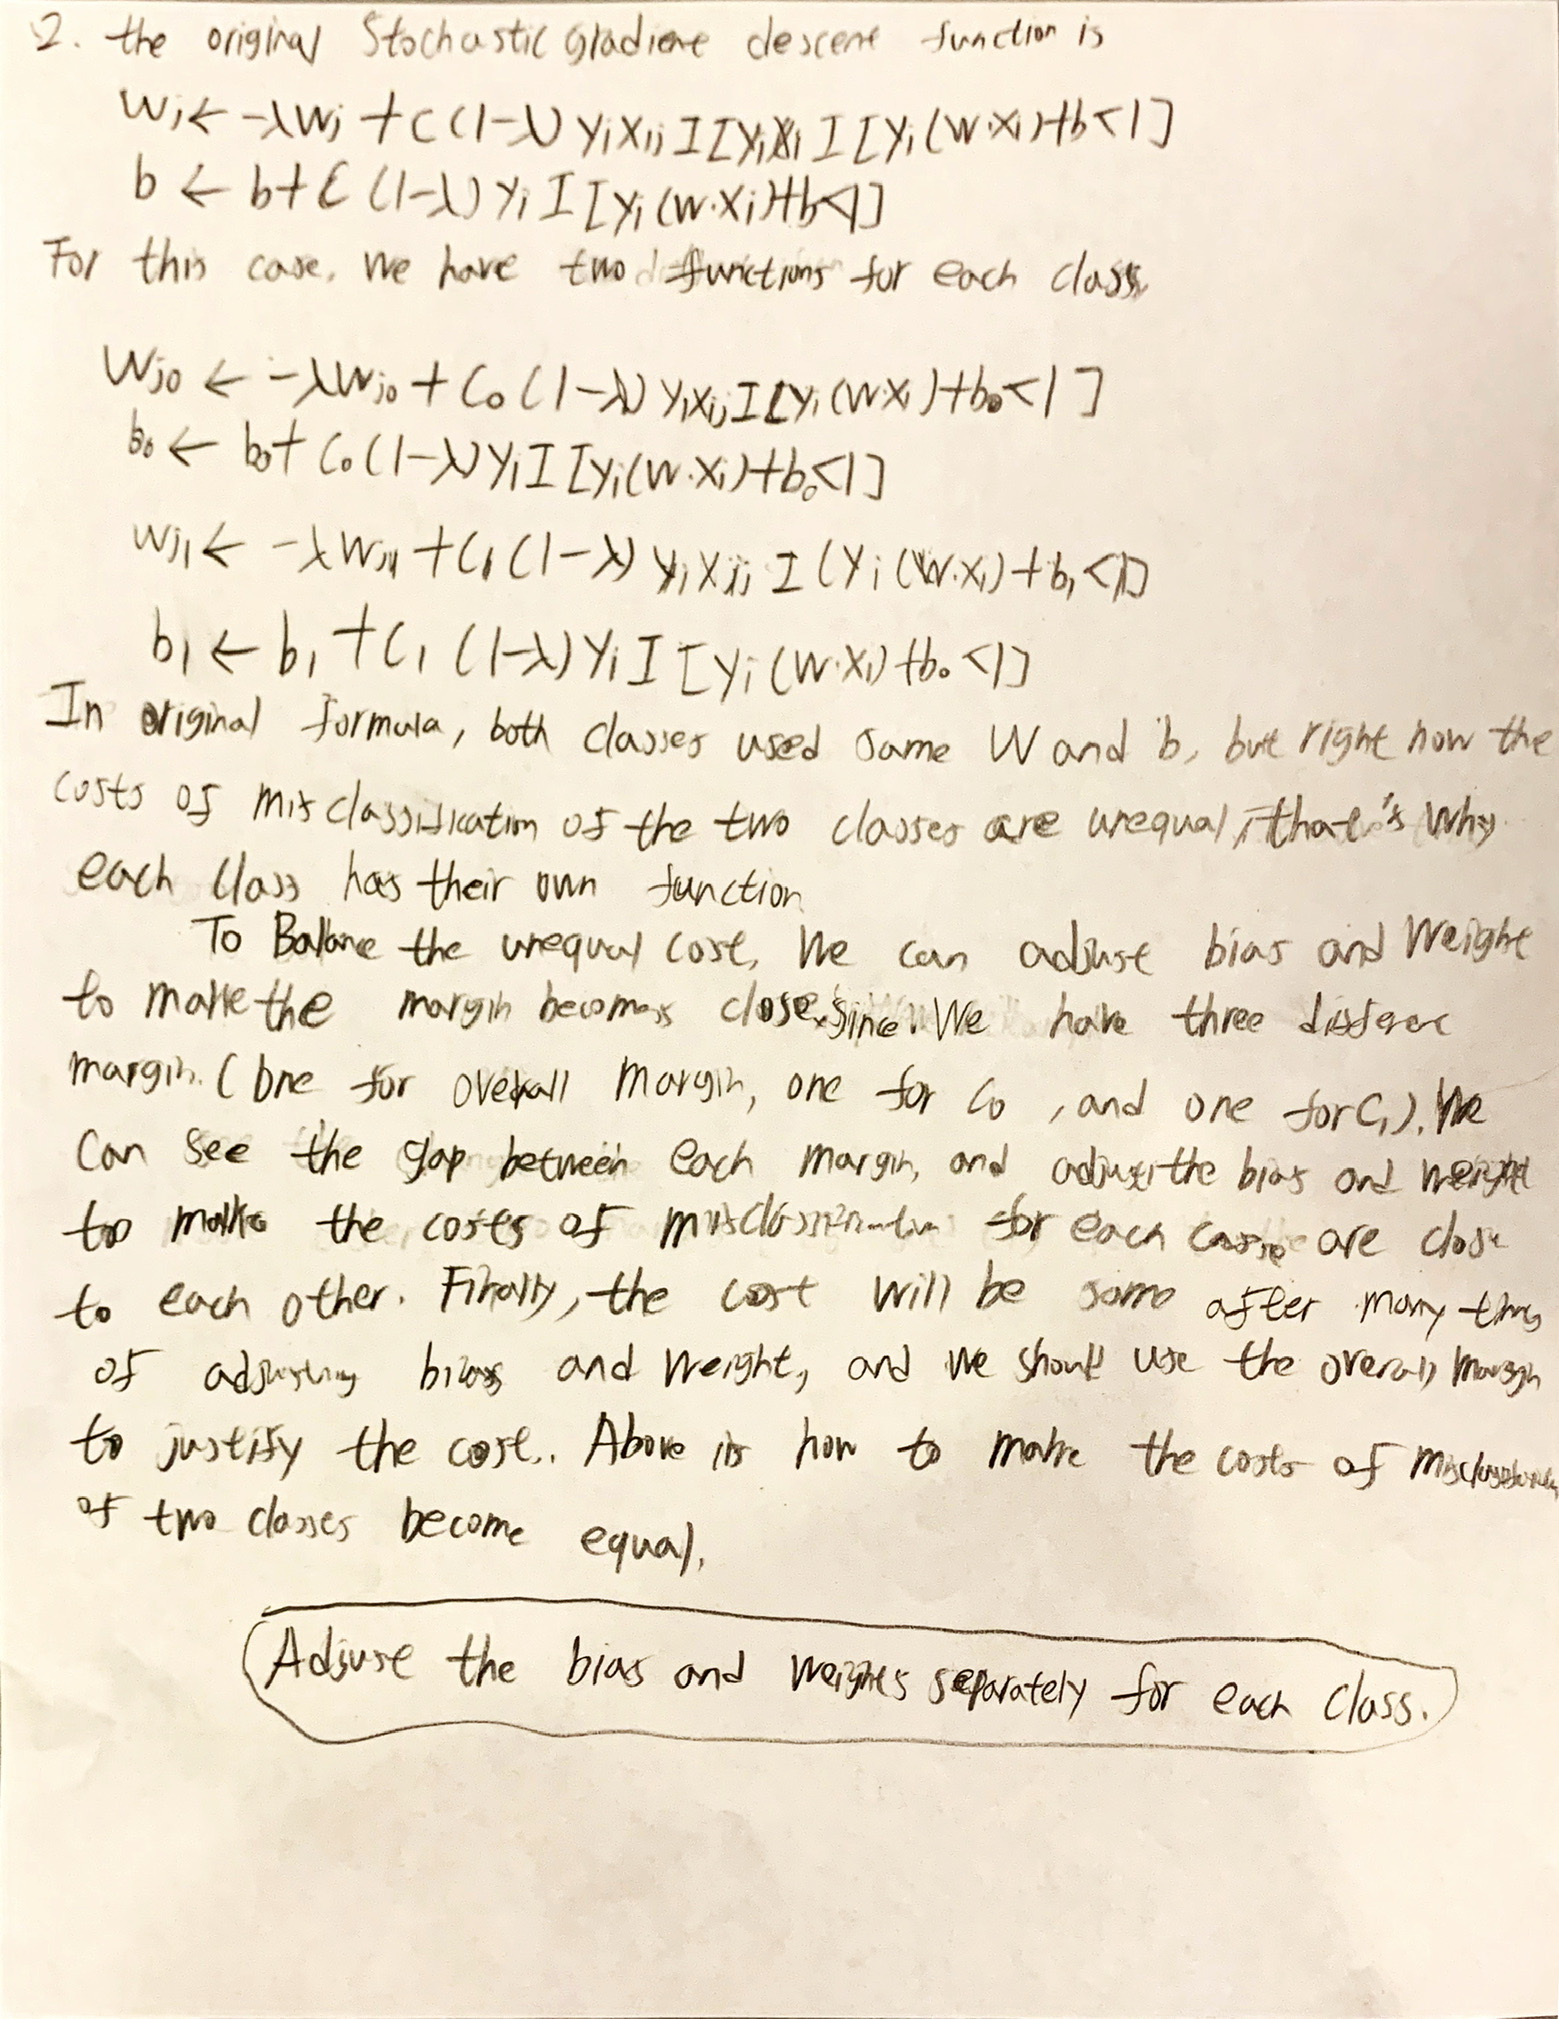 2. the original Stochastic Gladient descent function is
Wj ← -λWj + C(1-λ) yixij I[yi(w·xi)+b<1]
b ← b+C(1-λ)yi I[yi(w·xi)+b<1]
For this case, We have two functions for each class
Wj0 ← -λWj0 + C0(1-λ) yixij I[yi(w·xi)+b0<1]
b0 ← b0+ C0(1-λ)yi I[yi(w·xi)+b0<1]
Wj1 ← -λWj1 + C1(1-λ) yixij I(yi(w·xi)+b1<1]
b1 ← b1 + C1(1-λ) yi I[yi(w·xi)+b0<1]
In original formula, both classes used same W and b, but right now the
costs of misclassification of the two classes are unequal, that's why
each class has their own function
To Balance the unequal cost, We can adjust bias and Weight
to make the margin becomes close. Since We have three different
margin. (one for overall margin, one for C0, and one for C1). We
can see the gap between each margin, and adjust the bias and weight
to make the costs of misclassification for each are close
to each other. Finally, the cost will be same after many times
of adjusting bias and weight, and we should use the overall margin
to justify the cost. Above is how to make the costs of misclassification
of two classes become equal.
Adjust the bias and weights separately for each class.